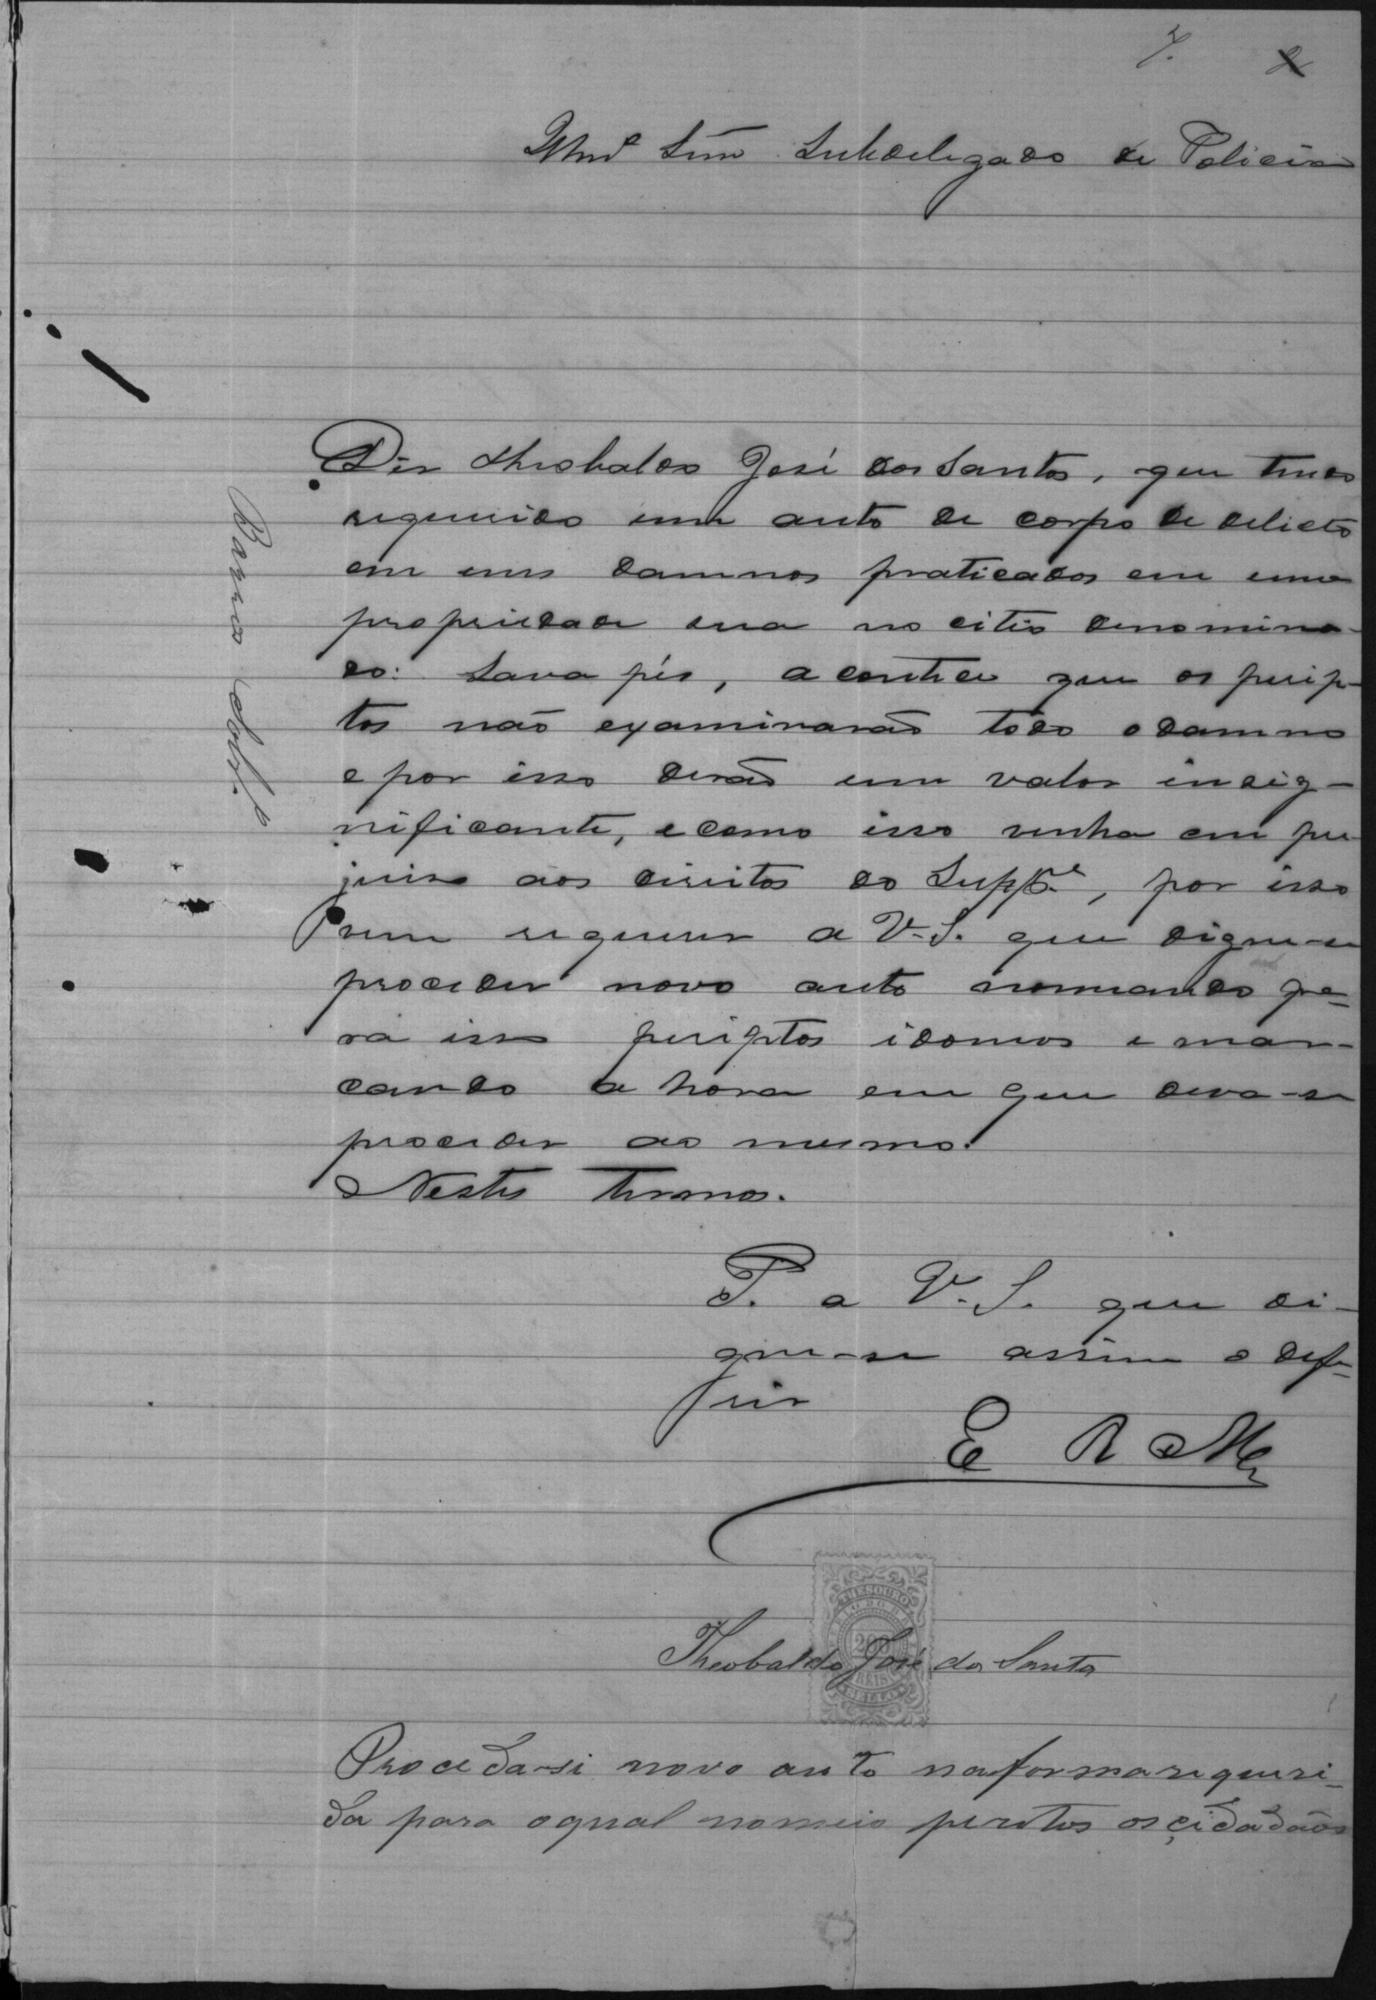 7.
Illmo Snr. Subdelegado de Policia
Diz Theobaldo José dos Santos, que tendo
requerido um auto de corpo de delicto
em uns damnos praticados em uma
propriedade sua no citio denomina-
do: Lava pés, acontece que os perip-
tos não examinarão todo o damno
e por isso derão um valor insig-
nificante, e como isso venha em pre
juiso aos direitos do Suppe., por isso
vem requerer a V. S. que digne-se
proceder novo auto nomeando pa-
ra isso periptos idoneos e mar-
cando a hora em que deva-se
proceder ao mesmo.
Nestes termos.
P. a V. S. que di-
gne-se assim o defe-
rir
E R Mce
THESOURO
200
REIS
Theobaldo José dos Santos
Proceda-si novo auto na forma requeri-
da para o qual nomeio peritos os cidadãos
Barros Sobro.